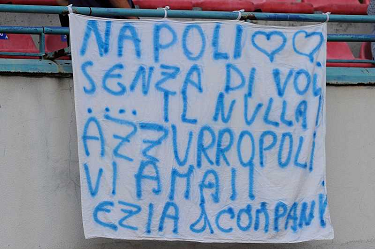 NAPOLI
SENZA DI VOI
.... IL NULLA!
AZZURROPOLI
VI AMA!!
EZIA & COMPANY